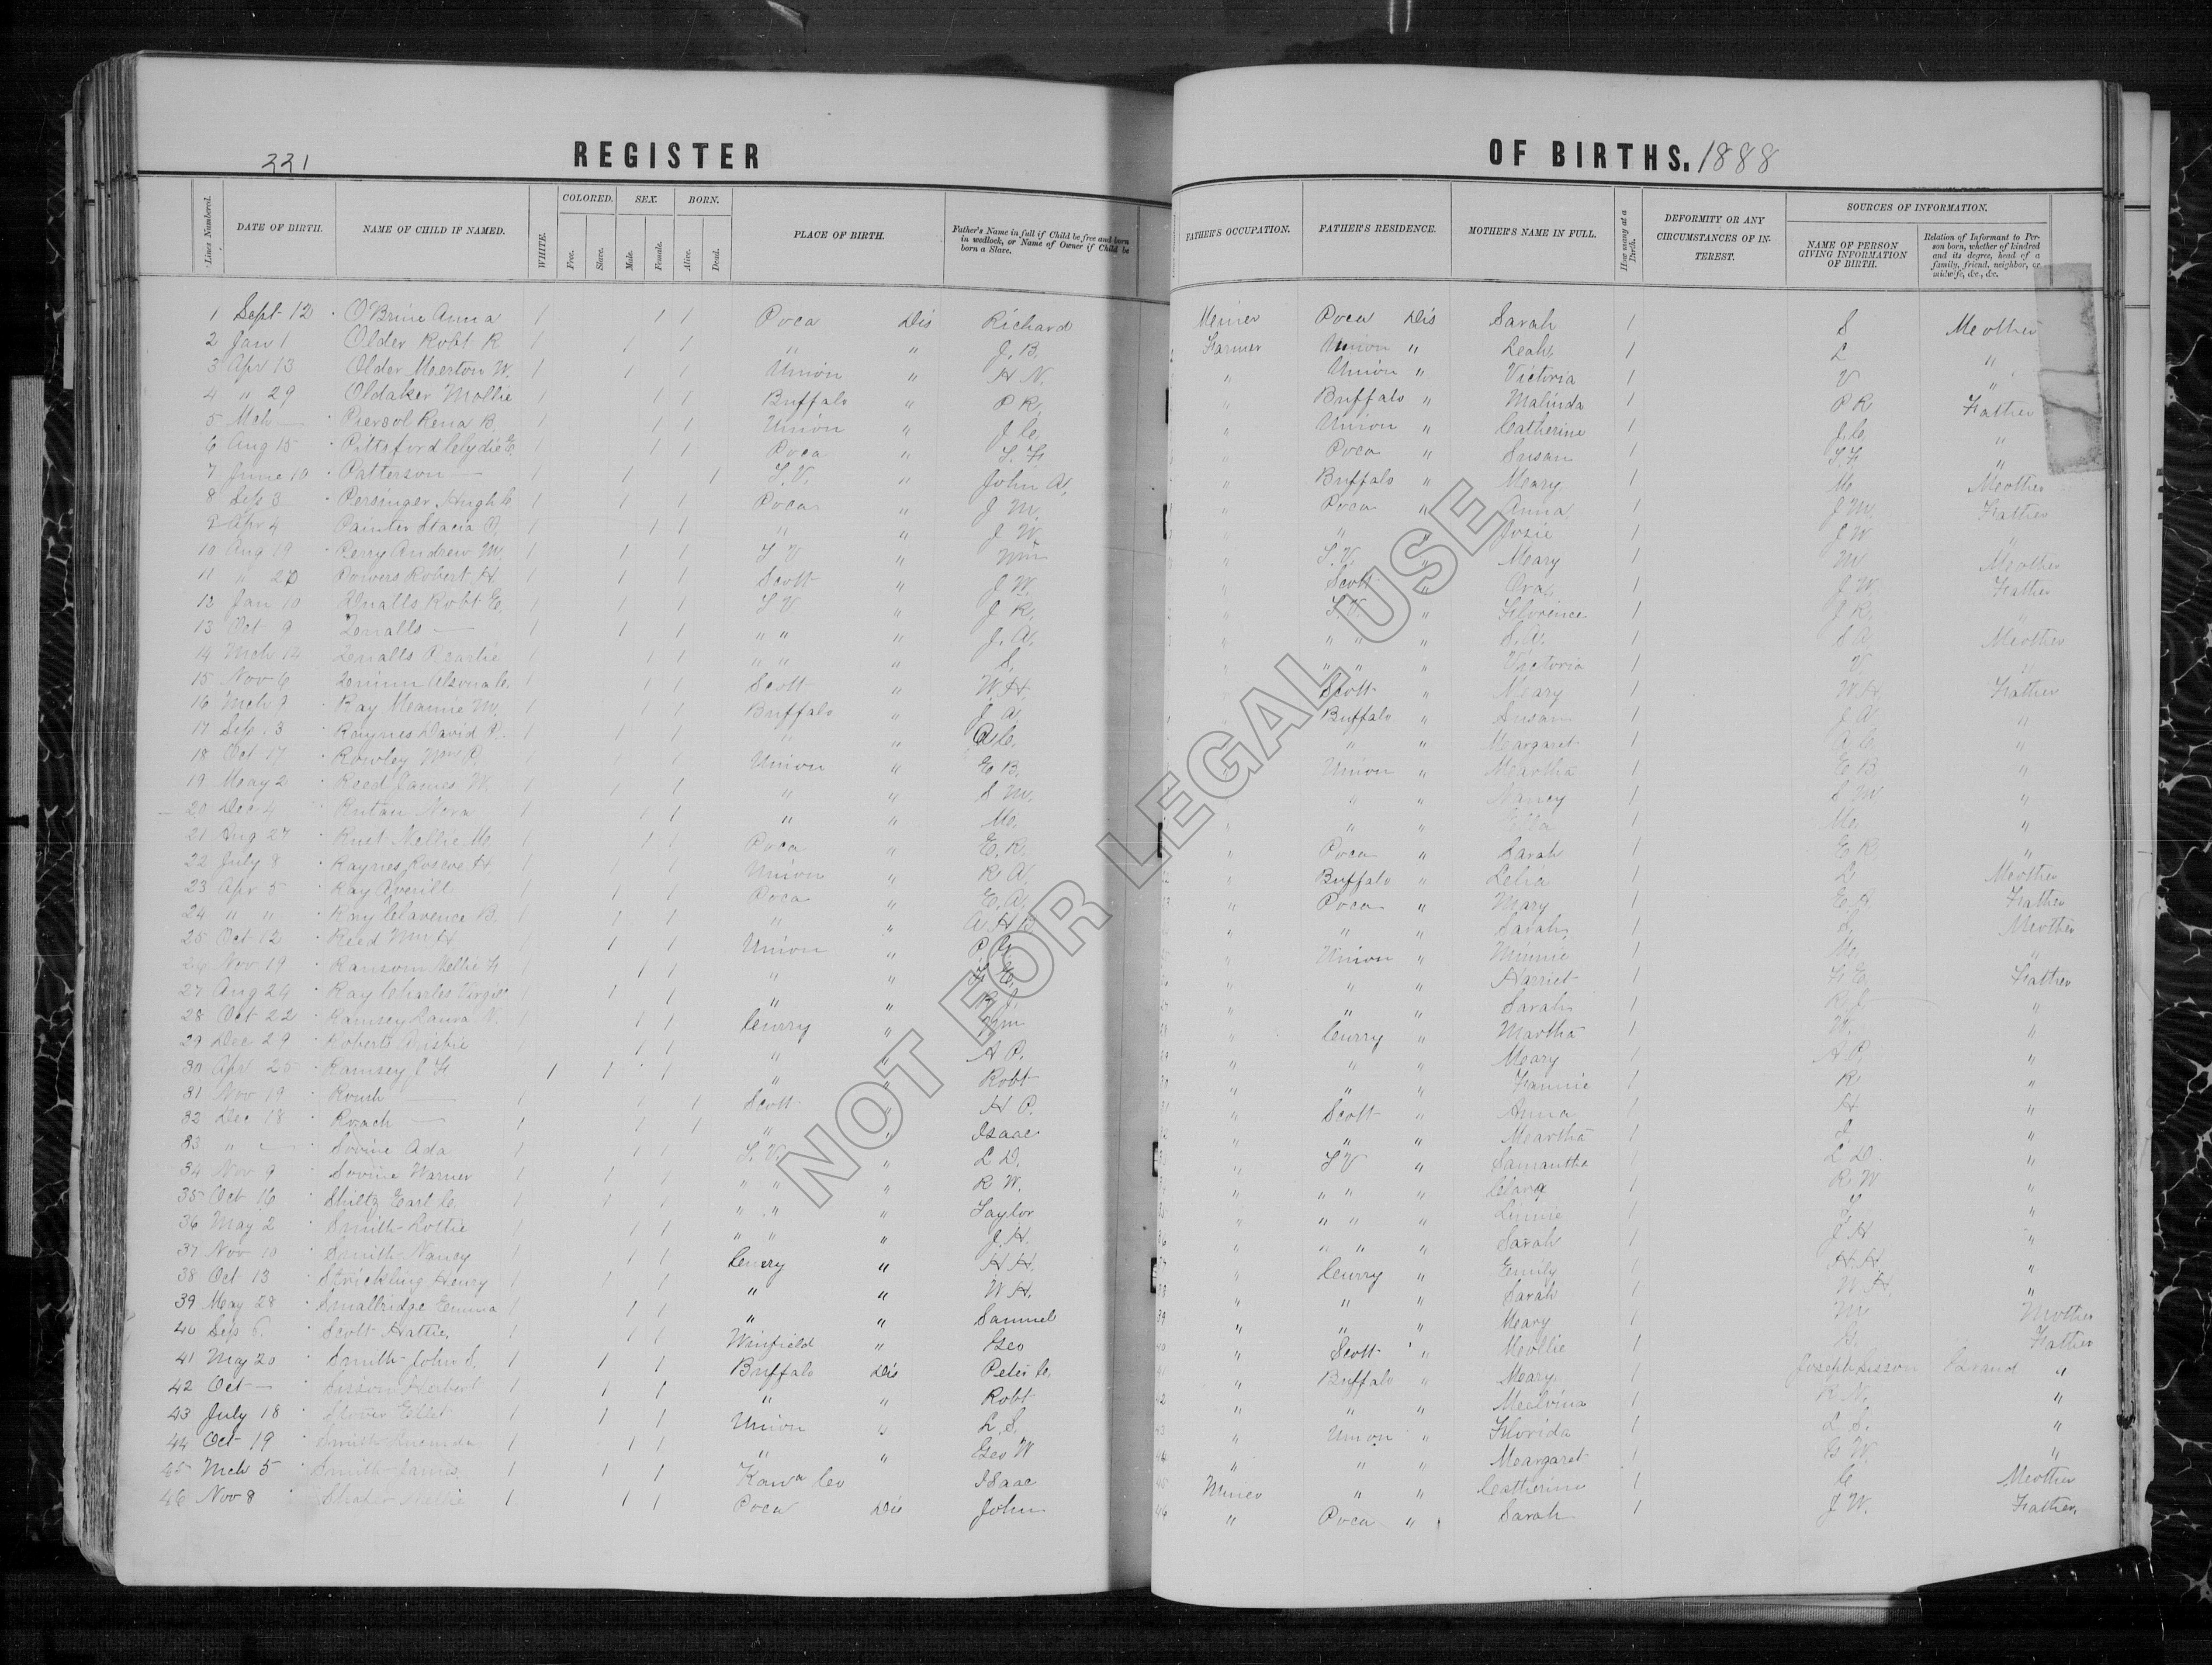 221
REGISTER OF BIRTHS. 1888
Lines Numbered. DATE OF BIRTH. NAME OF CHILD IF NAMED. WHITE. COLORED. Free. Slave. SEX. Male. Female. BORN. Alive. Dead. PLACE OF BIRTH. Father's Name in full if Child be free and born in wedlock, or Name of Owner if Child be born a Slave. FATHER'S OCCUPATION. FATHER'S RESIDENCE. MOTHER'S NAME IN FULL. How many at a Birth. DEFORMITY OR ANY CIRCUMSTANCES OF INTEREST. SOURCES OF INFORMATION. NAME OF PERSON GIVING INFORMATION OF BIRTH. Relation of Informant to Person born, whether of kindred and its degree, head of a family, friend, neighbor, or midwife, &c., &c.
1 Sept 12 O'Brine Anna 1 1 1 Poca Dis Richard Meiner Poca Dis Sarah 1 S Mother
2 Jan 1 Older Robt R 1 1 1 " " J. B. Farmer Union " Leah 1 L "
3 Apr 13 Older Merton W. 1 1 1 Union " H N. " Union " Victoria 1 V "
4 " 29 Oldaker Mollie 1 1 1 Buffalo " P R. " Buffalo " Malinda 1 P R Father
5 Mch — Piersol Rena B. 1 1 1 Union " J. C. " Union " Catherine 1 J. C. "
6 Aug 15 Pittsford Clydie E. 1 1 1 Poca " S. F. " Poca " Susan 1 S. F. "
7 June 10 Patterson — 1 1 1 T. V. " John A. " Buffalo " Mary 1 M. Mother
8 Sep 3 Persinger Hugh C. 1 1 1 Poca " J M. " Poca " Anna 1 J M. Father
9 Apr 4 Painter Stacia O. 1 1 1 " " J W. " " " Josie 1 J W "
10 Aug 19 Perry Andrew M. 1 1 1 T V " Wm " T. V. " Mary 1 M Mother
11 " 20 Powers Robert H. 1 1 1 Scott " J W. " Scott " Ora 1 J W. Father
12 Jan 10 Qualls Robt E. 1 1 1 T V " J R. " T. V. " Florence 1 J R. "
13 Oct 9 Qualls — 1 1 1 " " " J. A. " " " " S. A. 1 S A. Mother
14 Mch 14 Qualls Pearlie 1 1 1 " " " S. " " " " Victoria 1 V. "
15 Nov 6 1 1 1 Scott " W. H. " Scott " Mary 1 W. H. Father
16 Mch 9 Ray Mannie M. 1 1 1 Buffalo " J A. Buffalo " Susan 1 J A. "
17 Sep. 3 Raynes David P. 1 1 1 " " A C. " " " Margaret 1 A. C. "
18 Oct 17 Rowley Wm P. 1 1 1 Union " E B. " Union " Martha 1 E B. "
19 May 2 Reed James W. 1 1 1 " " S M. " " " Nancy 1 S M "
20 Dec 4 Rutan Nora 1 1 1 " " M. " " " Ella 1 M. "
21 Aug 27 Rust Nellie M. 1 1 1 Poca " E. R. " Poca " Sarah 1 E R "
22 July 8 Raynes Roscoe H. 1 1 1 Union " R A " Buffalo " Lelia 1 L. Mother
23 Apr 5 Ray Averill 1 1 1 Poca " E. A. " Poca " Mary 1 E. A. Father
24 " " Ray Clarence B. 1 1 1 " " A H " " " Sarah 1 S. Mother
25 Oct 12 Reed Wm H 1 1 1 Union " P " Union " Minnie 1 M. "
26 Nov 19 Ransom Mellie F. 1 1 1 " " F. E. " " " Harriet 1 F. E. Father
27 Aug 24 Ray Charles Virgil 1 1 1 " " R. J. " " " Sarah 1 R. J. "
28 Oct 22 Ramsey Laura N. 1 1 1 Curry " Wm " Curry " Martha 1 W. "
29 Dec 29 Roberts 1 1 1 " " A P. " " " Mary 1 A P. "
30 Apr 25 Ramsey J F 1 1 1 " " Robt " " " Fannie 1 R "
31 Nov 19 Roush — 1 1 1 Scott " H P. " Scott " Anna 1 H "
32 Dec 18 Roach — 1 1 1 " " Isaac " " " Martha 1 I. "
33 " — Sovine Ada 1 1 1 T. V. " L D. " T V " Samantha 1 L D. "
34 Nov 9 Sovine Warner 1 1 1 " " " R W. " " " " Clara 1 R W "
35 Oct 16 Shiltz Earl C. 1 1 1 " " " Taylor " " " " Linnie 1 T. "
36 May 2 Smith Lottie 1 1 1 " " " J. H. " " " " Sarah 1 J H "
37 Nov 10 Smith Nancy 1 1 1 Curry " H H. " Curry " Emily 1 H H. "
38 Oct 13 Strickling Henry 1 1 1 " " W H. " " " Sarah 1 W H. "
39 May 28 Smallridge Emma 1 1 1 " " Samuel " " " Mary 1 M Mother
40 Sep 6. Scott Hattie. 1 1 1 Winfield " Geo " Scott " Mollie 1 G. Father
41 May 20 Smith John S. 1 1 1 Buffalo Dis Peter C. " Buffalo " Mary 1 Joseph Sisson "
42 Oct — Sisson Herbert 1 1 1 " " Robt " " " Melvina 1 R N. "
43 July 18 Stover Ellet 1 1 1 Union " L. S. " Union " Florida 1 L. S. "
44 Oct 19 Smith 1 1 1 " " Geo W " " " Margaret 1 G W. "
45 Mch 5 Smith James 1 1 1 Kawa Co Isaac Miner " " Catherine 1 C. Mother
46 Nov 8 Shafer Nellie 1 1 1 Poca Dis John " Poca " Sarah 1 J W. Father.
NOT FOR LEGAL USE